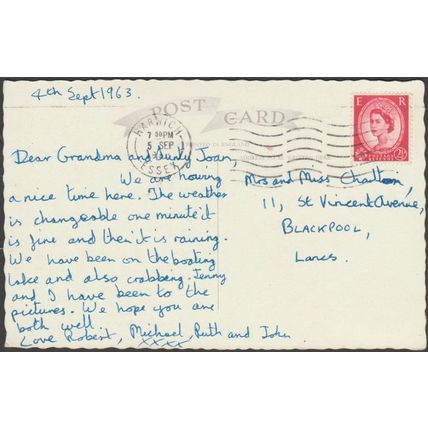 4th Sept 1963.
POST CARD
E R
HARWICH
7 30PM
5 SEP
ESSEX
2½
Dear Grandma and Aunty Joan,
We are having
a nice time here. The weather
is changeable one minute it
is fine and then it is raining.
We have been on the boating
lake and also crabbing. Jenny
and I have been to the
pictures. We hope you are
both well.
Love Robert, Michael, Ruth and John
xxxx
Mrs and Miss Charlton,
11, St Vincent Avenue,
BLACKPOOL,
Lancs.